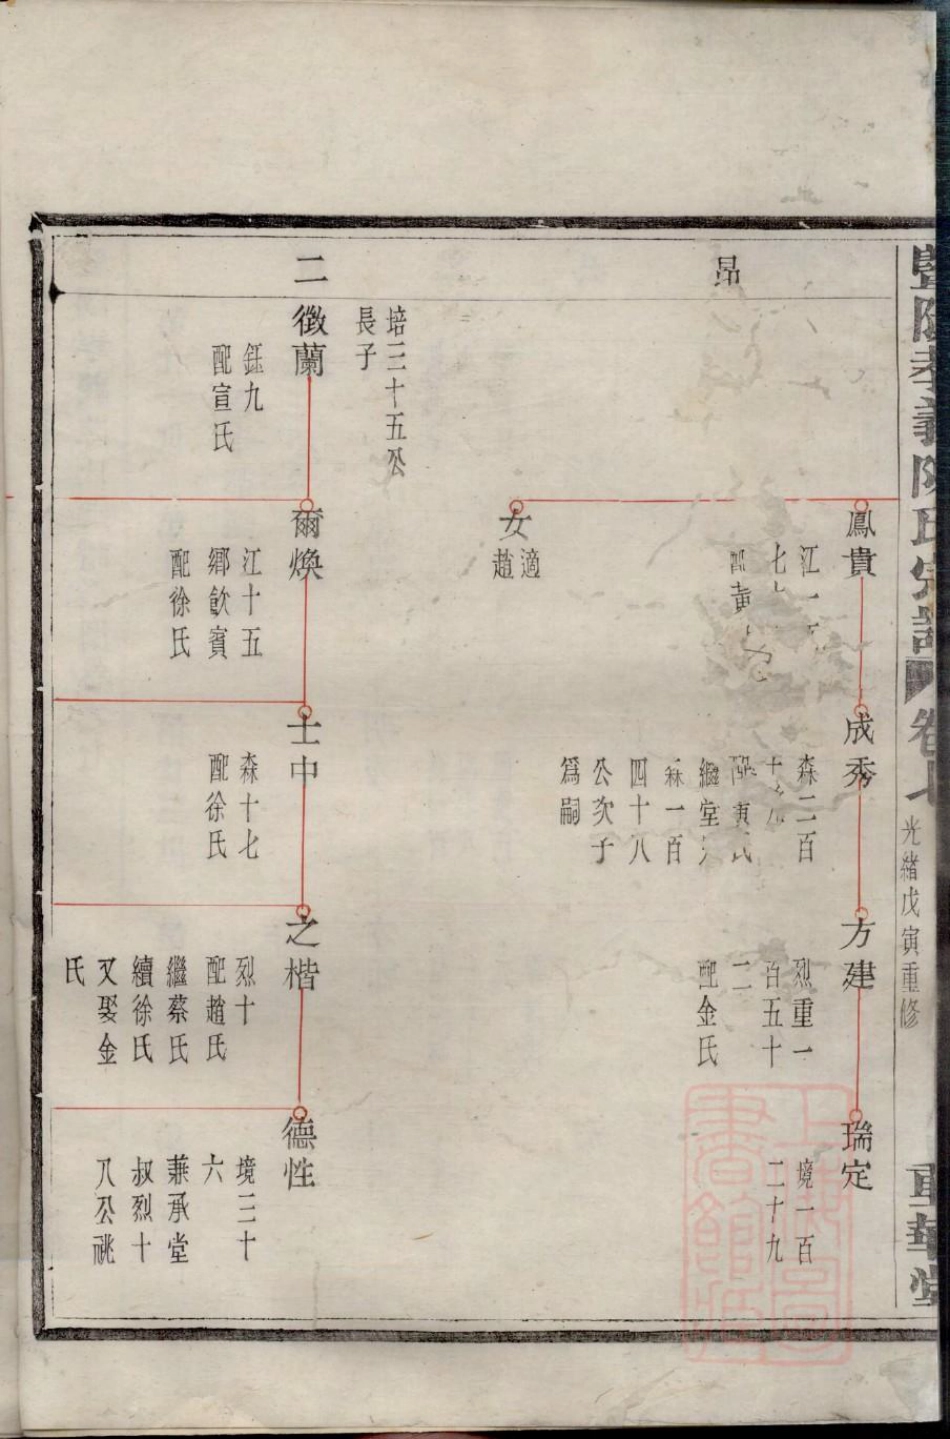 暨陽孝義陳氏宗譜
卷七
光緒戊寅重修
重華堂
昂
鳳貴
江一百
七
配黃氏
成秀
森二百
十
配黃氏
繼堂
森一百
四十八
公次子
爲嗣
方建
烈重一
百五十
二
配金氏
瑞定
境一百
二十九
女
適
趙
二
培三十五公
長子
徵蘭
鈺九
配宣氏
爾煥
江十五
鄉飲賓
配徐氏
士中
森十七
配徐氏
之楷
烈十
配趙氏
繼蔡氏
續徐氏
又娶金
氏
德性
境三十
六
兼承堂
叔烈十
八公祧